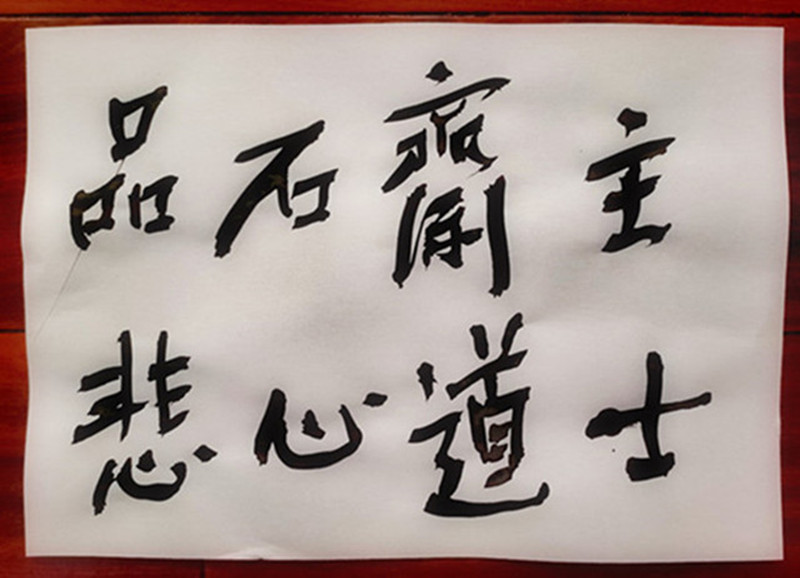 品石齋主
悲心道士